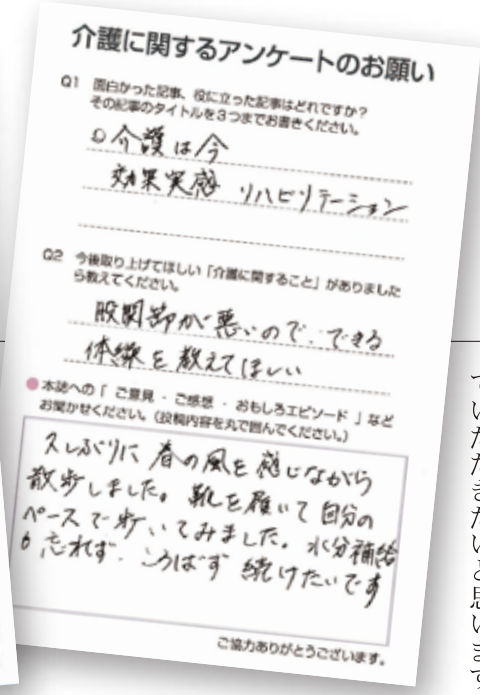 介護に関するアンケートのお願い
Q1 面白かった記事、役に立った記事はどれですか?
その記事のタイトルを3つまでお書きください。
○介護は今
効果実感 リハビリテーション
Q2 今後取り上げてほしい「介護に関すること」がありました
ら教えてください。
股関節が悪いので、できる
体操を教えてほしい
●本誌への「 ご意見 ・ ご感想 ・ おもしろエピソード 」など
お聞かせください。(投稿内容を丸で囲んでください。)
久しぶりに春の風を感じながら
散歩しました。靴を履いて自分の
ペースで歩いてみました。水分補給
も忘れず、ころばず続けたいです
ご協力ありがとうございます。
ていただきたいと思います